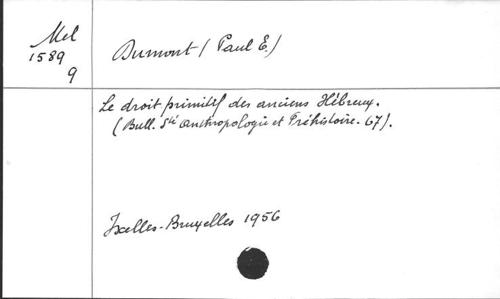 Mel
1589
9
Dumont (Paul E.)
Le droit primitif des anciens Hébreux.
(Bull. Sté Anthropologie et Préhistoire. 67).
Ixelles-Bruxelles 1956